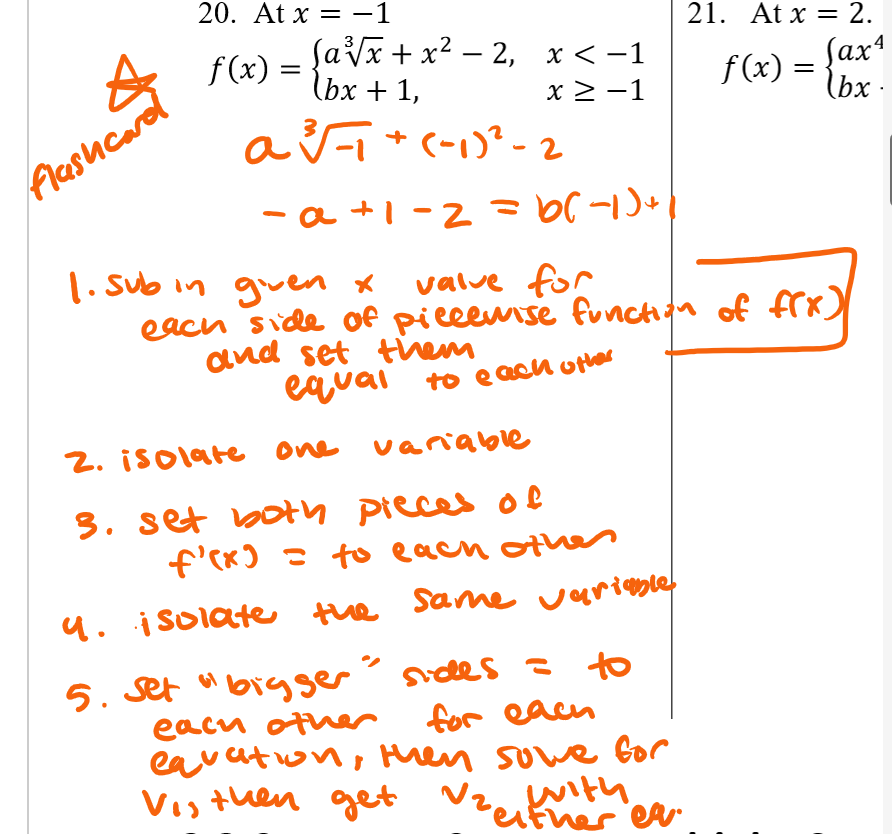 20. At x = −1
f(x) = {a∛x + x² − 2, x < −1
bx + 1, x ≥ −1
21. At x = 2.
f(x) = {ax⁴
bx
flashcard
a ∛-1 + (-1)² - 2
-a + 1 - 2 = b(-1)+1
1. sub in given x value for
each side of piecewise function of f(x)
and set them
equal to each other
2. isolate one variable
3. set both pieces of
f'(x) = to each other
4. isolate the same variable
5. set "bigger" sides = to
each other for each
equation, then solve for
V₁, then get V₂ with
either eq.